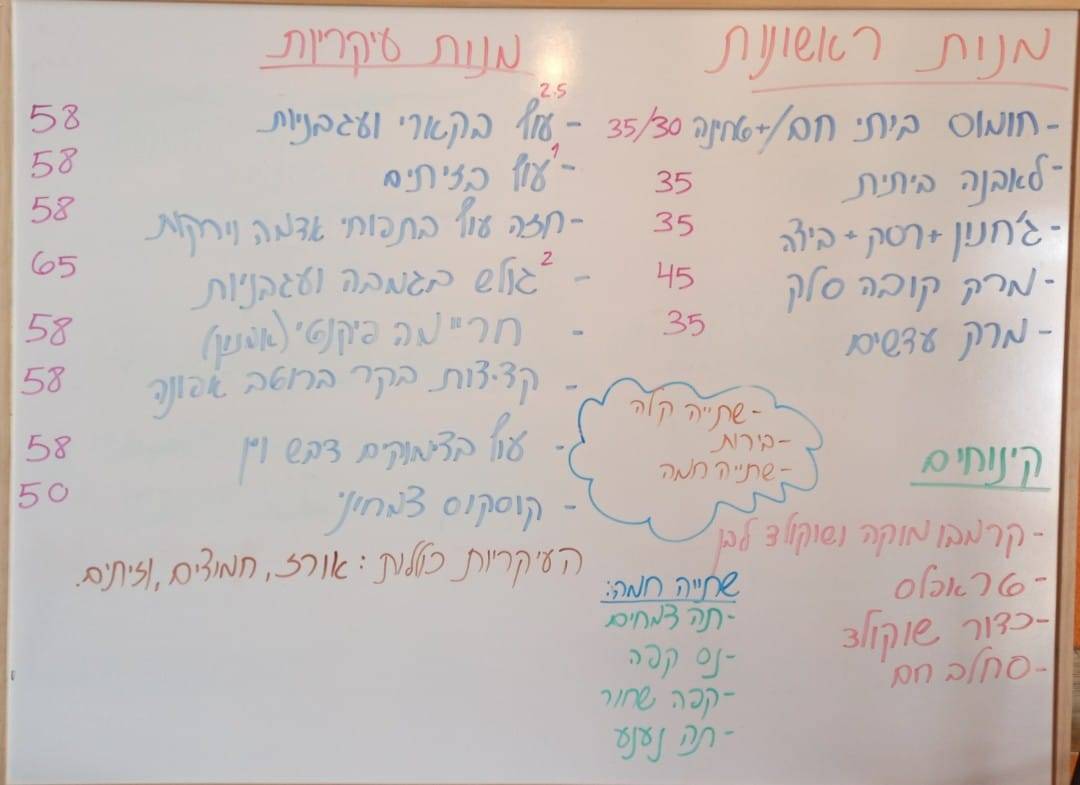 מנות ראשונות
- חומוס ביתי חם/+טחינה 35/30
- לאבנה ביתית 35
- ג'חנון + רסק + ביצה 35
- מרק קובה סלק 45
- מרק עדשים 35
מנות עיקריות
- עוף בקארי ועגבניות 2.5 58
- עוף בזיתים 1 58
- חזה עוף בתפוחי אדמה וירקות 58
- גולש בגמבה ועגבניות 2 65
- חריימה פיקנטי (אמנון) 58
- קציצות בקר ברוטב אפונה 58
- עוף בצימוקים דבש ויין 58
- קוסקוס צמחוני 50
העיקריות כוללות: אורז, חמוצים, וזיתים.
- שתייה קלה
- בירות
- שתייה חמה
קינוחים
- קרמבו מוקה ושוקולד לבן
- טראפלס
- כדור שוקולד
- סחלב חם
שתייה חמה:
- תה צמחים
- נס קפה
- קפה שחור
- תה נענע